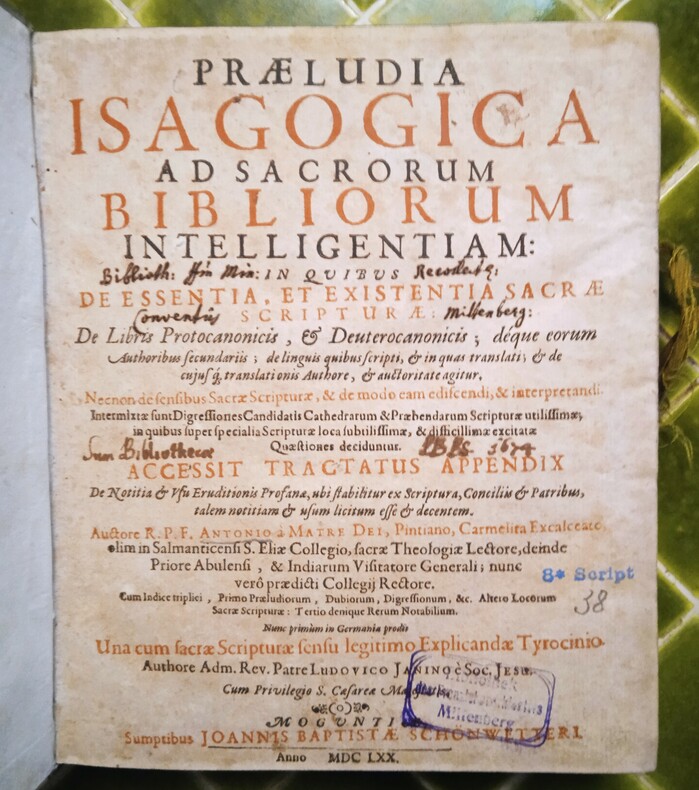 PRÆLUDIA
ISAGOGICA
AD SACRORUM
BIBLIORUM
INTELLIGENTIAM:
Biblioth: ffm Min: IN QUIBUS Recollectq:
DE ESSENTIA, ET EXISTENTIA SACRÆ
Conventus SCRIPTURÆ: Miltenberg:
De Libris Protocanonicis, & Deuterocanonicis; déque eorum
Authoribus secundariis; de linguis quibus scripti, & in quas translati; & de
cujusq́, translationis Authore, & auctoritate agitur.
Necnon de sensibus Sacræ Scripturæ, & de modo eam ediscendi, & interpretandi.
Intermixtæ sunt Digressiones Candidatis Cathedrarum & Præbendarum Scripturæ utilissimæ,
in quibus super specialia Scripturæ loca subtilissimæ, & difficillimæ excitatæ
Sum Bibliothecæ Quæstiones deciduntur. 1674
ACCESSIT TRACTATUS APPENDIX
De Notitia & Usu Eruditionis Profanæ, ubi stabilitur ex Scriptura, Conciliis & Patribus,
talem notitiam & usum licitum esse & decentem.
Auctore R. P. F. ANTONIO à MATRE DEI, Pintiano, Carmelita Excalceato,
olim in Salmanticensi S. Eliæ Collegio, sacræ Theologiæ Lectore, deinde
Priore Abulensi, & Indiarum Visitatore Generali; nunc
verò prædicti Collegij Rectore.
8* Script
38
Cum Indice triplici, Primo Præludiorum, Dubiorum, Digressionum, &c. Altero Locorum
Sacræ Scripturæ: Tertio denique Rerum Notabilium.
Nunc primùm in Germania prodit
Una cum sacræ Scripturæ sensu legitimo Explicandæ Tyrocinio.
Authore Adm. Rev. Patre LUDOVICO JANINO è Soc. JESU.
Cum Privilegio S. Cæsareæ
Bibliothek
Miltenberg
MOGUNTIÆ
Sumptibus JOANNIS BAPTISTÆ SCHÖNWETTERI.
Anno MDC LXX.